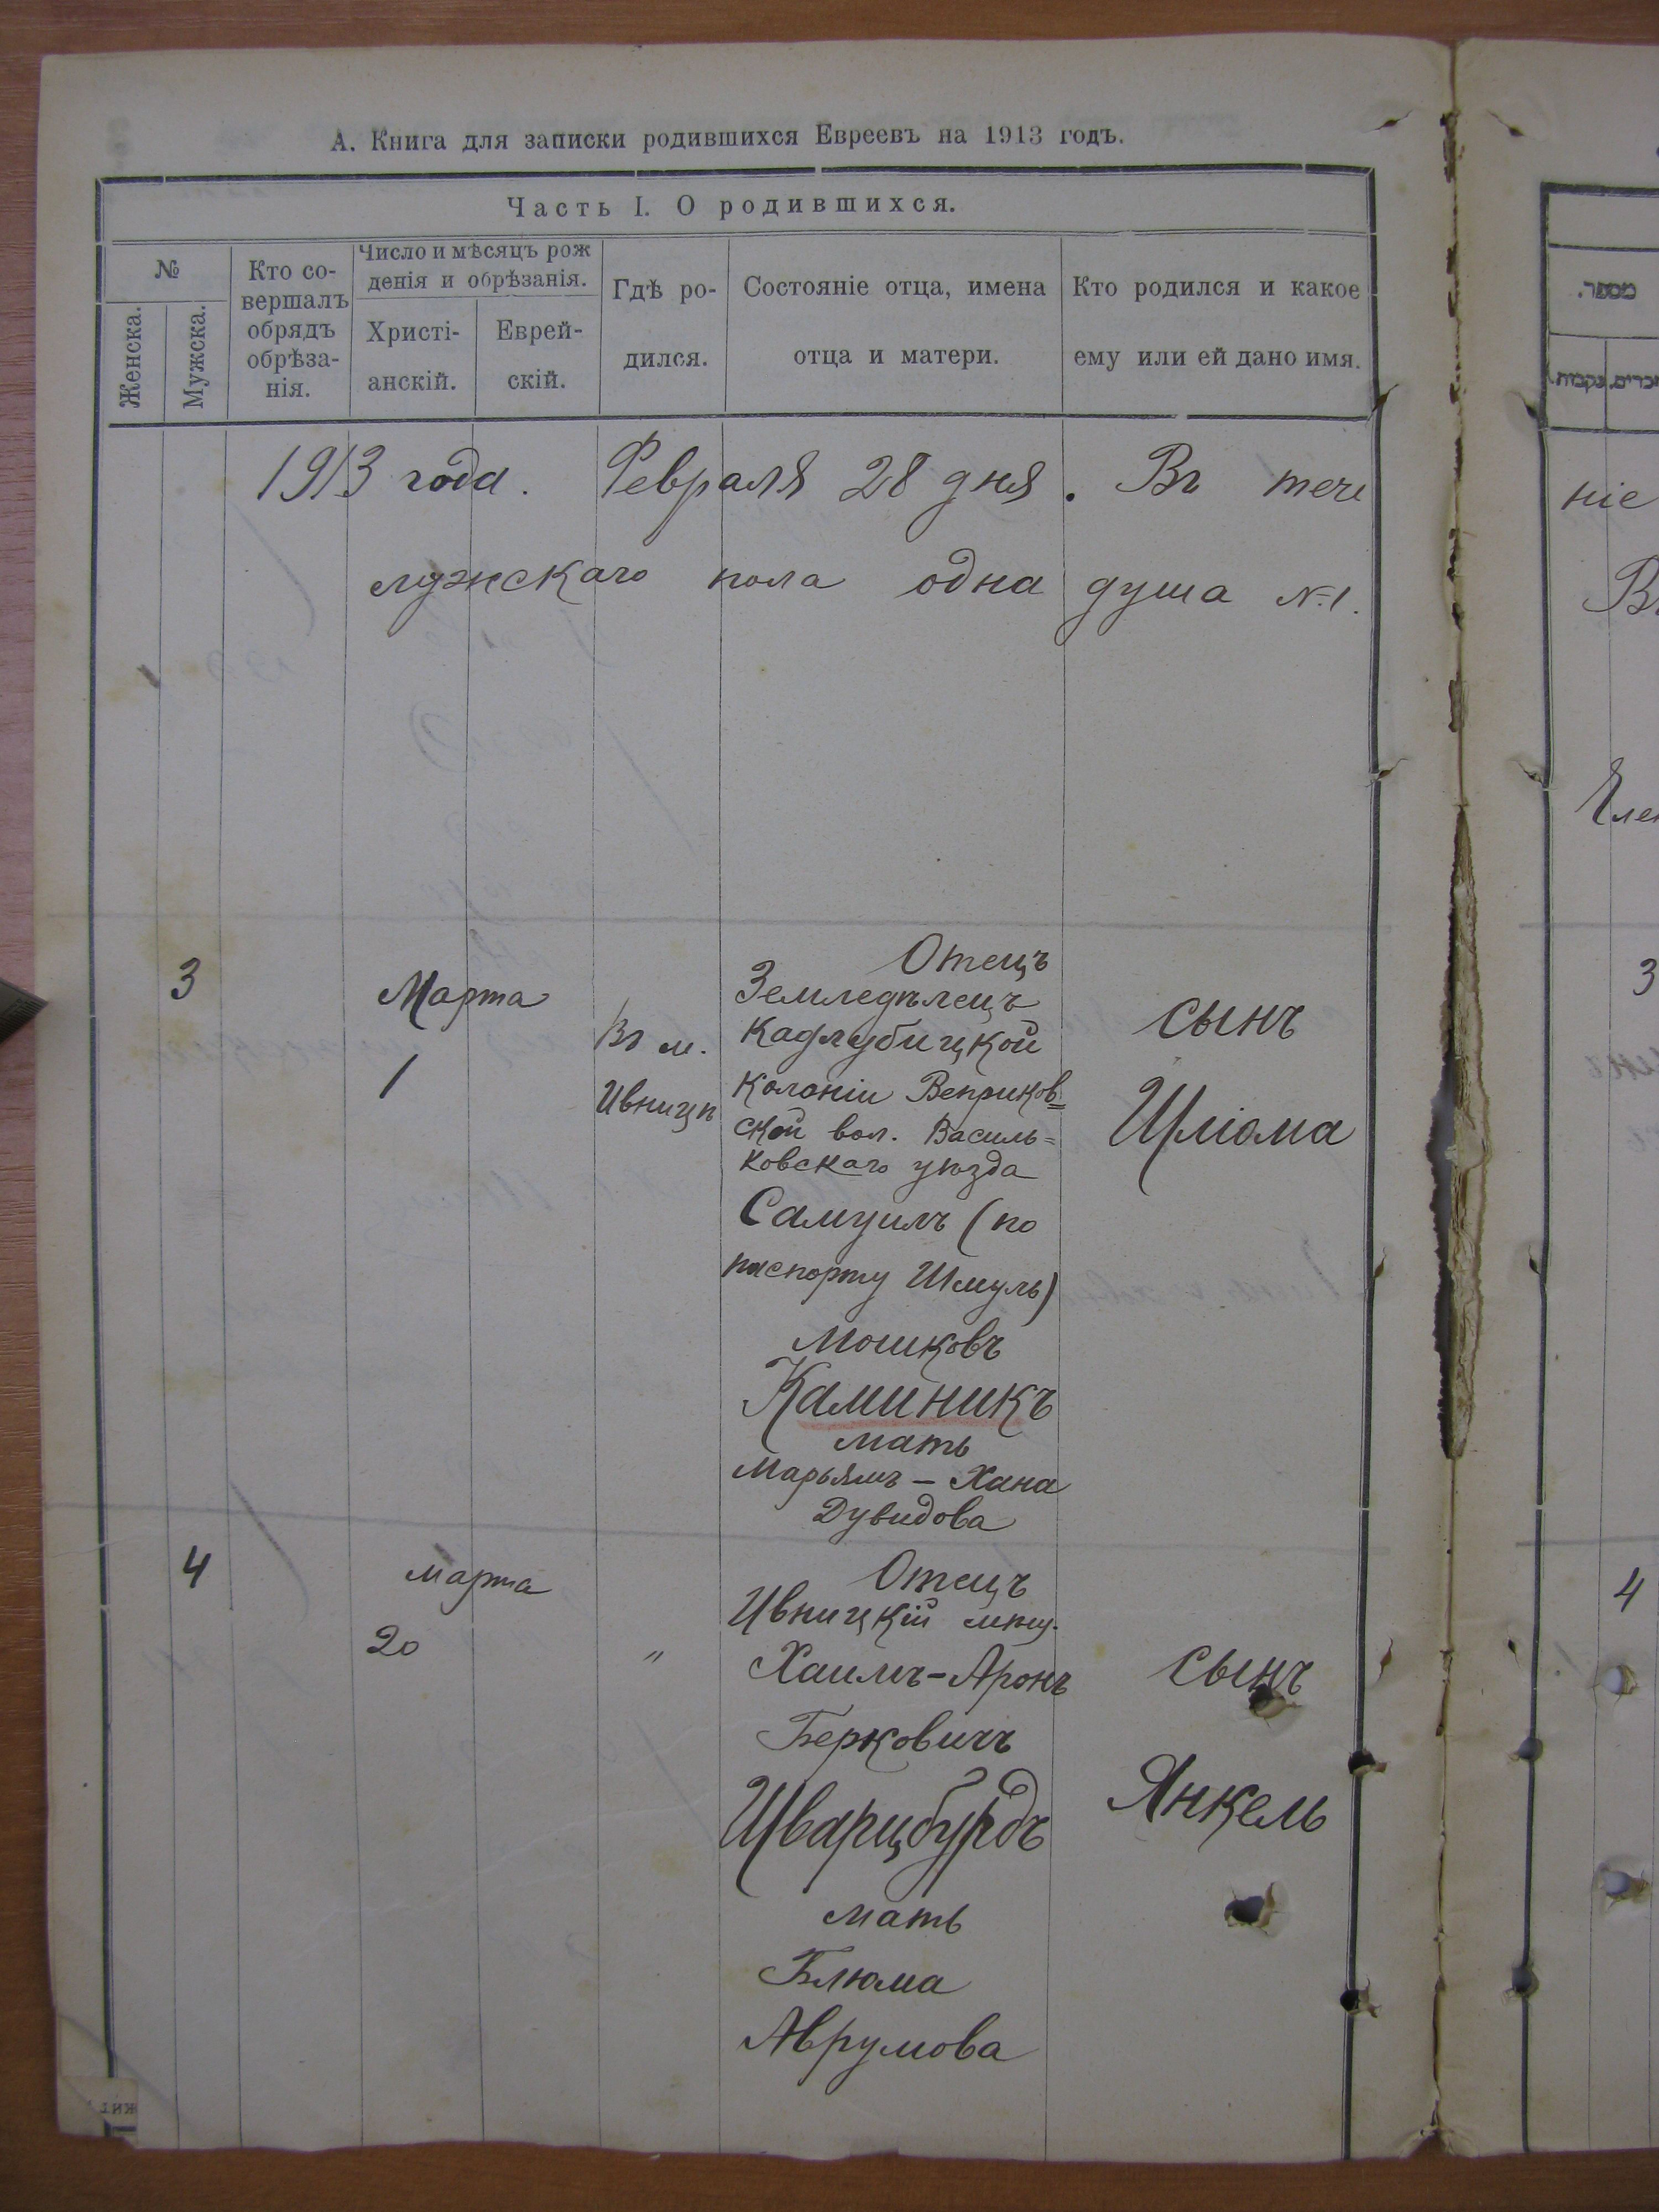 А. Книга для записки родившихся Евреевъ на 1913 годъ.
Часть I. О родившихся.
№
Женска.
Мужска.
Кто со-
вершалъ
обрядъ
обрѣза-
нія.
Число и мѣсяцъ рож
денія и обрѣзанія.
Христі-
анскій.
Еврей-
скій.
Гдѣ ро-
дился.
Состояніе отца, имена
отца и матери.
Кто родился и какое
ему или ей дано имя.
1913 года. Февраля 28 дня. Въ тече
мужскаго пола одна душа №1.
3
Марта
1
Въ м.
Ивницѣ
Отецъ
Земледѣлецъ
Кадлубицкой
колоніи Веприков=
ской вол. Василь=
ковскаго уѣзда
Самуилъ (по
паспорту Шмуль)
Мошковъ
Каминикъ
мать
Марьямъ - Хана
Дувидова
сынъ
Шліома
4
марта
20
"
Отецъ
Ивницкій мѣщ.
Хаимъ-Аронъ
Берковичъ
Шварцбурдъ
мать
Блюма
Аврумова
сынъ
Янкель
מספר.
זכרים.
נקבות.
ніе
3
4